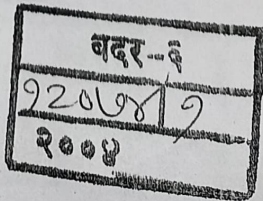 बदर-६
१२०७४/१
२००४